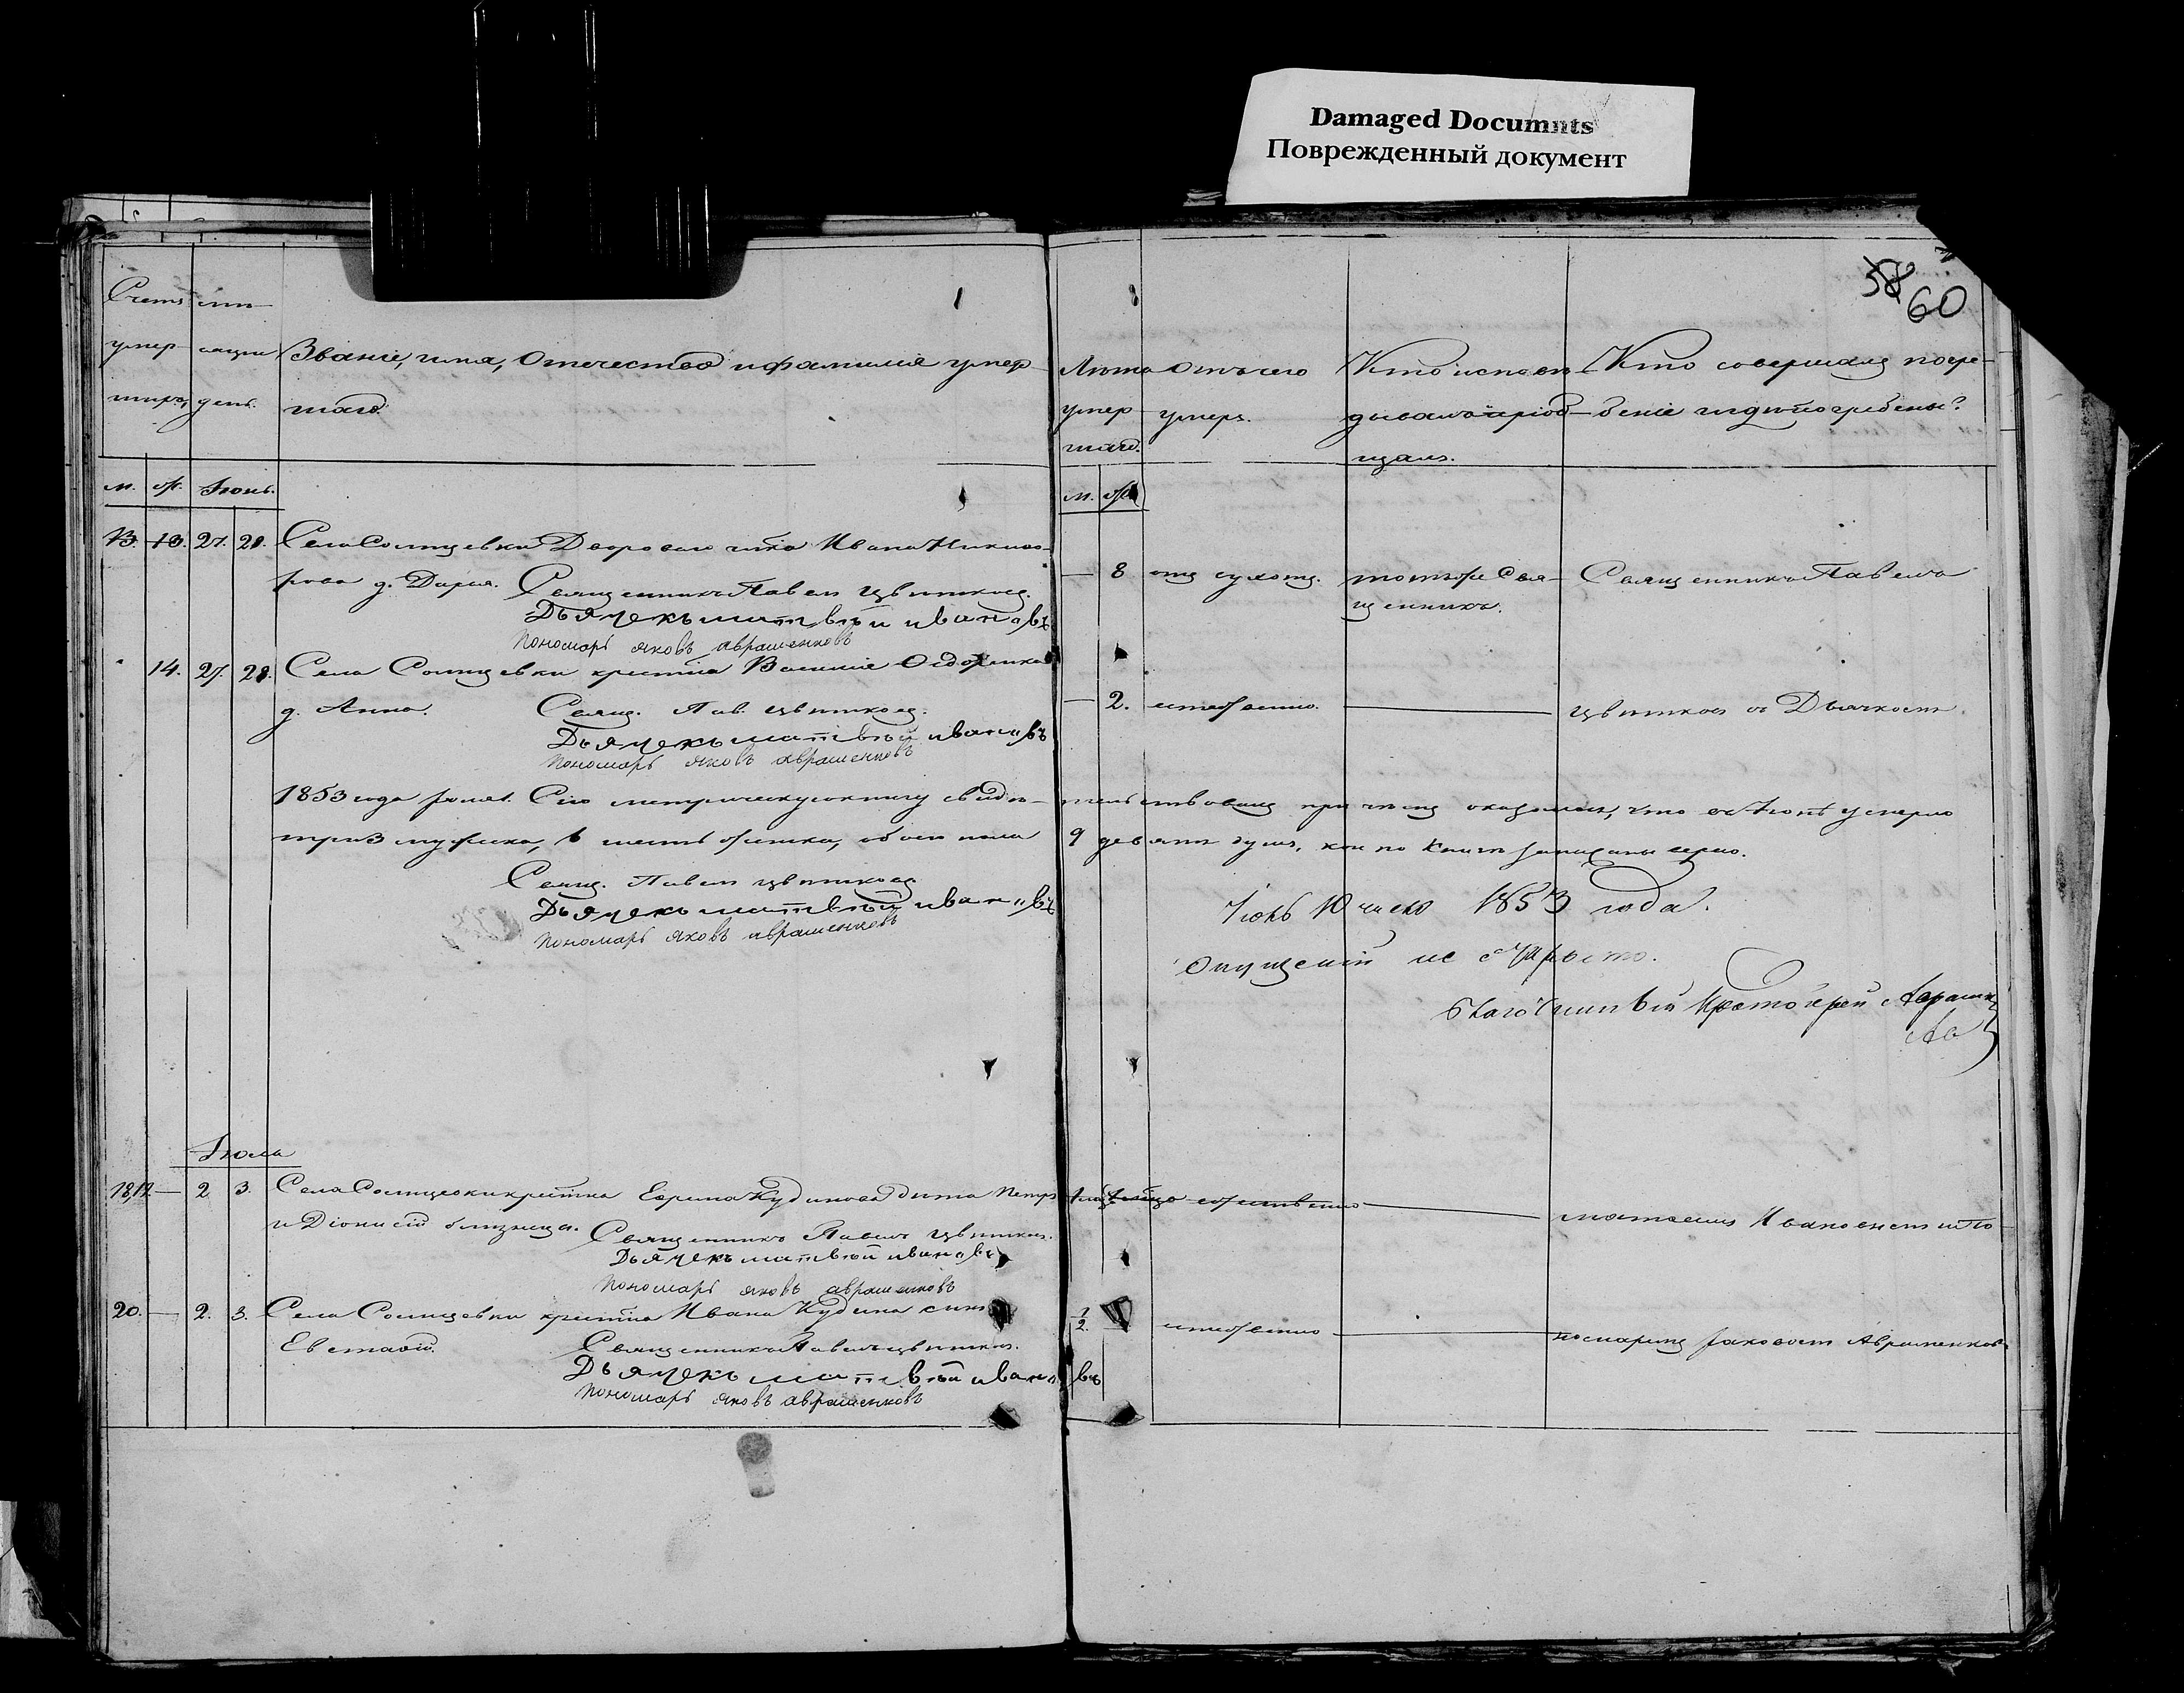 Damaged Documnts
Поврежденный документ
58
60
Счетъ
умер
шихъ,
день.
Званіе, имя, Отечество и фамилія умер
шаго.
Лѣта
умер
шаго.
Отъ чего
умеръ.
Кто исповѣ-
дывалъ и пріоб-
щалъ.
Кто совершалъ погре-
беніе и гдѣ погребены?
м. ж. Іюнь.
м.
13. 27. 28. Села Солнцевки Двороваго Ивана Никифо-
рова д. Дарія. Священникъ Павелъ Цвѣтковъ.
Дьячекъ матвѣй ивановъ
Пономарь яковъ аврашенковъ
— 8 отъ сухот. тотъ же Свя-
щенникъ.
Священникъ Павелъ
14. 27. 28. Села Солнцевки крестна
д. Анна. Свящ. Пав. Цвѣтковъ.
Дьячекъ матвѣй ивановъ
Пономарь яковъ аврашенковъ
— 2. — Цвѣтковъ съ Дьячкомъ
1853 года Сію метрическую книгу свидѣ-
тельствовали при чемъ оказалось, что въ Іюнѣ умерло
мужеска, 6 шесть женска, обоего пола
9 девять душъ, кои по книгѣ записаны верно.
Свящ. Павелъ Цвѣтковъ
Дьячекъ матвѣй ивановъ
Пономарь яковъ аврашенковъ
Іюнь 10 число 1853 года.
Опущеній не
Благочинный Протоіерей
Іюля
18, 19. — 2 3. Села Солнцевки крестна Кудинова дѣти Петръ
и Діонисій близнеца. Священникъ Павелъ Цвѣтковъ.
Дьячекъ матвѣй ивановъ
Пономарь яковъ аврашенковъ
— Матвеемъ Ивановымъ и По
20. — 2. 3. Села Солнцевки крестна Ивана Кудина сынъ
Евстафій. Священникъ Павелъ Цвѣтковъ.
Дьячекъ матвѣй ивановъ
Пономарь яковъ аврашенковъ
1/2. — номаремъ Яковомъ